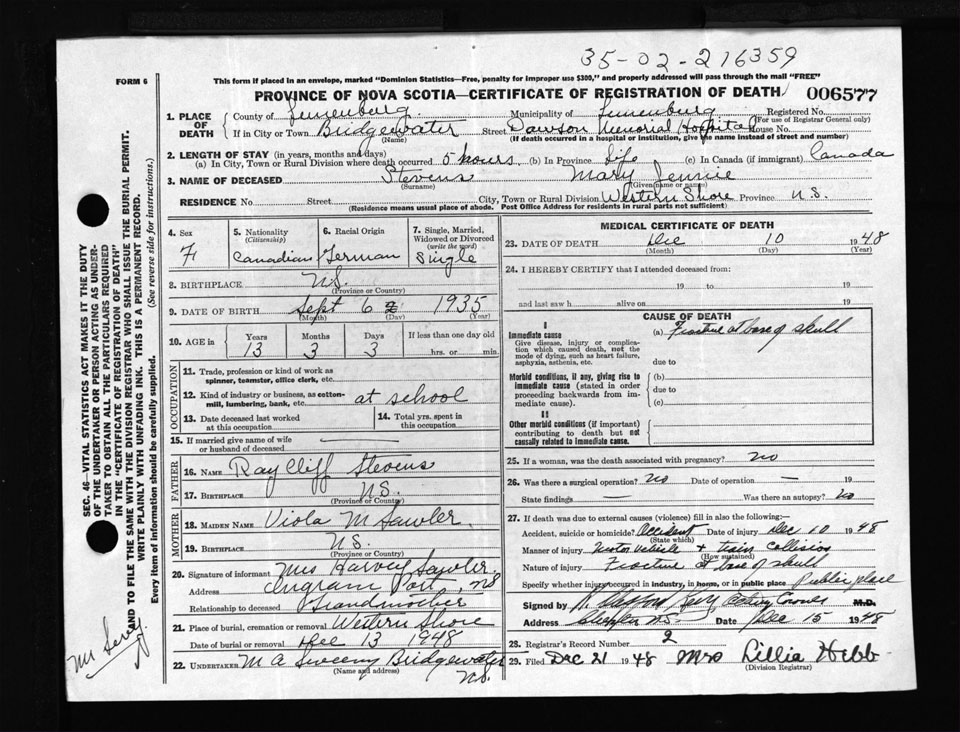 35-02-216359
FORM 6
This form if placed in an envelope, marked "Dominion Statistics—Free, penalty for improper use $300," and properly addressed will pass through the mail "FREE"
PROVINCE OF NOVA SCOTIA—CERTIFICATE OF REGISTRATION OF DEATH
006577
1. PLACE OF DEATH
County of Lunenburg Municipality of Lunenburg Registered No.
(For use of Registrar General only)
If in City or Town Bridgewater Street Dawson Memorial Hospital House No.
(Name) (If death occurred in a hospital or institution, give the name instead of street and number)
2. LENGTH OF STAY (in years, months and days)
(a) In City, Town or Rural Division where death occurred 5 hours (b) In Province Life (c) In Canada (if immigrant) Canada
3. NAME OF DECEASED Stevens Mary Jennie
(Surname) (Given name or names)
RESIDENCE No. Street City, Town or Rural Division Western Shore Province N.S.
(Residence means usual place of abode. Post Office Address for residents in rural parts not sufficient)
4. Sex F
5. Nationality (Citizenship) Canadian
6. Racial Origin German
7. Single, Married, Widowed or Divorced (write the word) Single
8. BIRTHPLACE N.S.
(Province or Country)
9. DATE OF BIRTH Sept 6 1935
(Month) (Day) (Year)
10. AGE in Years Months Days If less than one day old
13 3 3 hrs. or min.
OCCUPATION
11. Trade, profession or kind of work as spinner, teamster, office clerk, etc.
12. Kind of industry or business, as cotton-mill, lumbering, bank, etc. at school
13. Date deceased last worked at this occupation
14. Total yrs. spent in this occupation
15. If married give name of wife or husband of deceased
FATHER
16. NAME Ray Cliff Stevens
17. BIRTHPLACE N.S.
(Province or Country)
MOTHER
18. MAIDEN NAME Viola M Sawler
19. BIRTHPLACE N.S.
(Province or Country)
20. Signature of informant Mrs Harvey Sawler
Address Ingram Port, NS
Relationship to deceased Grandmother
21. Place of burial, cremation or removal Western Shore
Date of burial or removal Dec 13 1948
22. UNDERTAKER M A Sweeny Bridgewater
(Name and address) N.S.
MEDICAL CERTIFICATE OF DEATH
23. DATE OF DEATH Dec 10 1948
(Month) (Day) (Year)
24. I HEREBY CERTIFY that I attended deceased from:
19 to 19
and last saw h alive on 19
CAUSE OF DEATH
I
Immediate cause (a) Fracture at base of skull
Give disease, injury or complication which caused death, not the mode of dying, such as heart failure, asphyxia, asthenia, etc.
due to
Morbid conditions, if any, giving rise to immediate cause (stated in order proceeding backwards from immediate cause).
(b)
due to
(c)
II
Other morbid conditions (if important) contributing to death but not causally related to immediate cause.
25. If a woman, was the death associated with pregnancy? no
26. Was there a surgical operation? No Date of operation — 19
State findings — Was there an autopsy? No
27. If death was due to external causes (violence) fill in also the following:—
Accident, suicide or homicide? Accident Date of injury Dec 10 1948
(State which)
Manner of injury Motor vehicle & train collision
(How sustained)
Nature of injury Fracture at base of skull
Specify whether injury occurred in industry, in home, or in public place Public place
Signed by M.D.
Address Date Dec 15 1948
28. Registrar's Record Number 2
29. Filed Dec 21 1948 Mrs Lillia Hebb
(Division Registrar)
SEC. 46—VITAL STATISTICS ACT MAKES IT THE DUTY
OF THE UNDERTAKER OR PERSON ACTING AS UNDER-
TAKER TO OBTAIN ALL THE PARTICULARS REQUIRED
IN THE "CERTIFICATE OF REGISTRATION OF DEATH"
AND TO FILE THE SAME WITH THE DIVISION REGISTRAR WHO SHALL ISSUE THE BURIAL PERMIT.
WRITE PLAINLY WITH UNFADING INK. THIS IS A PERMANENT RECORD.
Every item of information should be carefully supplied. (See reverse side for instructions.)